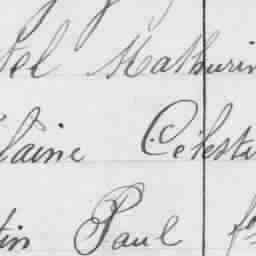 el Mathurin
laine Célesti
tin Paul